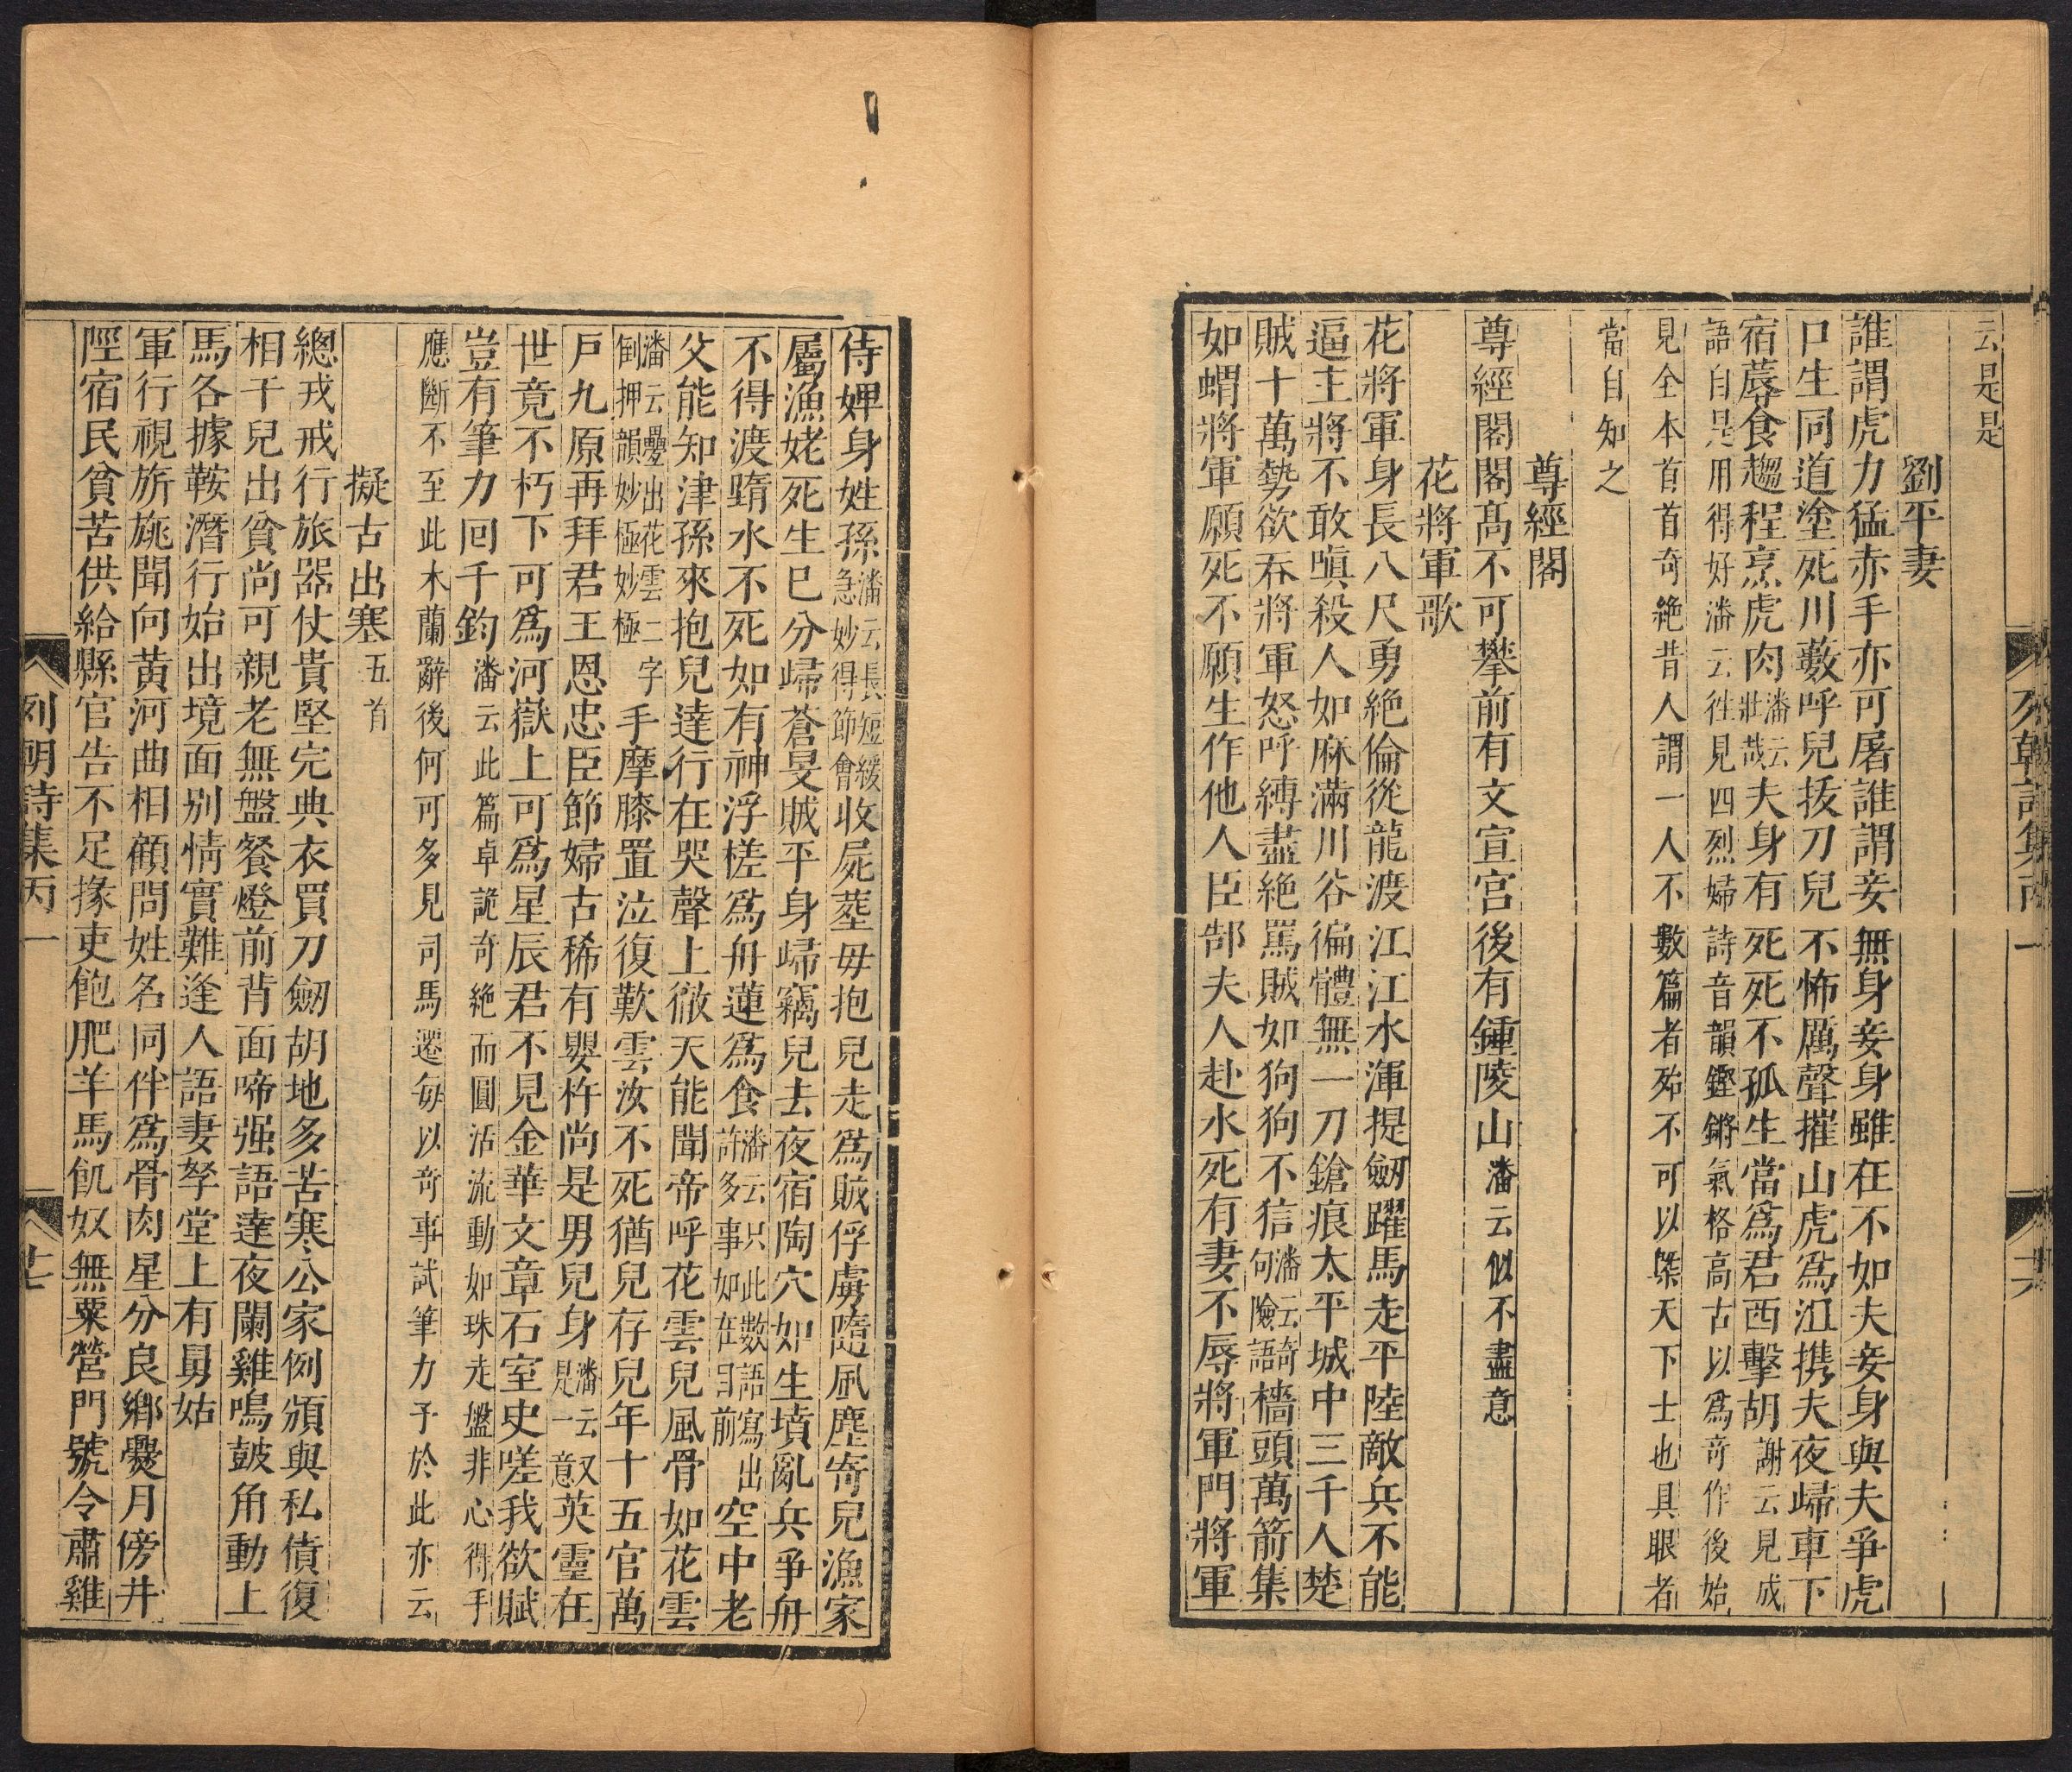 云是是
劉平妻
誰謂虎力猛赤手亦可屠誰謂妾無身妾身雖在不如夫妾身與夫爭虎
口生同道塗死川藪呼兒拔刀兒不怖厲聲摧山虎爲沮携夫夜歸車下
宿蓐食趨程烹虎肉潘云壯哉夫身有死死不孤生當爲君西擊胡謝云見成
語自是用得好潘云徃見四烈婦詩音韻鏗鏘氣格高古以爲竒作後始
見全本首首奇絶昔人謂一人不數篇者殆不可以槩天下士也具眼者
當自知之
尊經閣
尊經閣閣髙不可攀前有文宣宮後有鍾陵山潘云似不盡意
花將軍歌
花將軍身長八尺勇絶倫從龍渡江江水渾提劒躍馬走平陸敵兵不能
逼主將不敢嗔殺人如麻滿川谷徧體無一刀鎗痕太平城中三千人楚
賊十萬勢欲吞將軍怒呼縛盡絶罵賊如狗狗不狺潘云竒句險語檣頭萬箭集
如蝟將軍願死不願生作他人臣郜夫人赴水死有妻不辱將軍門將軍
侍婢身姓孫潘云長短緩急妙得節會收屍塟毋抱兒走爲賊俘虜隨風塵寄兒漁家
屬漁姥死生已分歸蒼旻賊平身歸竊兒去夜宿陶穴如生墳亂兵爭舟
不得渡踣水不死如有神浮槎爲舟蓮爲食潘云只此數語寫出許多事如在目前空中老
父能知津孫來抱兒達行在哭聲上徹天能聞帝呼花雲兒風骨如花雲
潘云疊出花雲二字倒押韻妙極妙極手摩膝置泣復歎雲汝不死猶兒存兒年十五官萬
戸九原再拜君王恩忠臣節婦古稀有嬰杵尚是男兒身潘云又是一意英靈在
世竟不朽下可爲河嶽上可爲星辰君不見金華文章石室史嗟我欲賦
豈有筆力回千鈞潘云此篇卓詭奇絶而圓活流動如珠走盤非心得手
應斷不至此木蘭辭後何可多見司馬遷每以竒事試筆力予於此亦云
擬古出塞五首
總戎戒行旅器仗貴堅完典衣買刀劒胡地多苦寒公家例頒與私債復
相干兒出貧尚可親老無盤餐燈前背面啼强語達夜闌雞鳴鼓角動上
馬各據鞍潛行始出境面别情實難逢人語妻孥堂上有舅姑
軍行視旂旐聞向黄河曲相顧問姓名同伴爲骨肉星分良鄉爨月傍井
陘宿民貧苦供給縣官告不足掾吏飽肥羊馬飢奴無粟營門號令肅雞
列朝詩集丙一
廿七